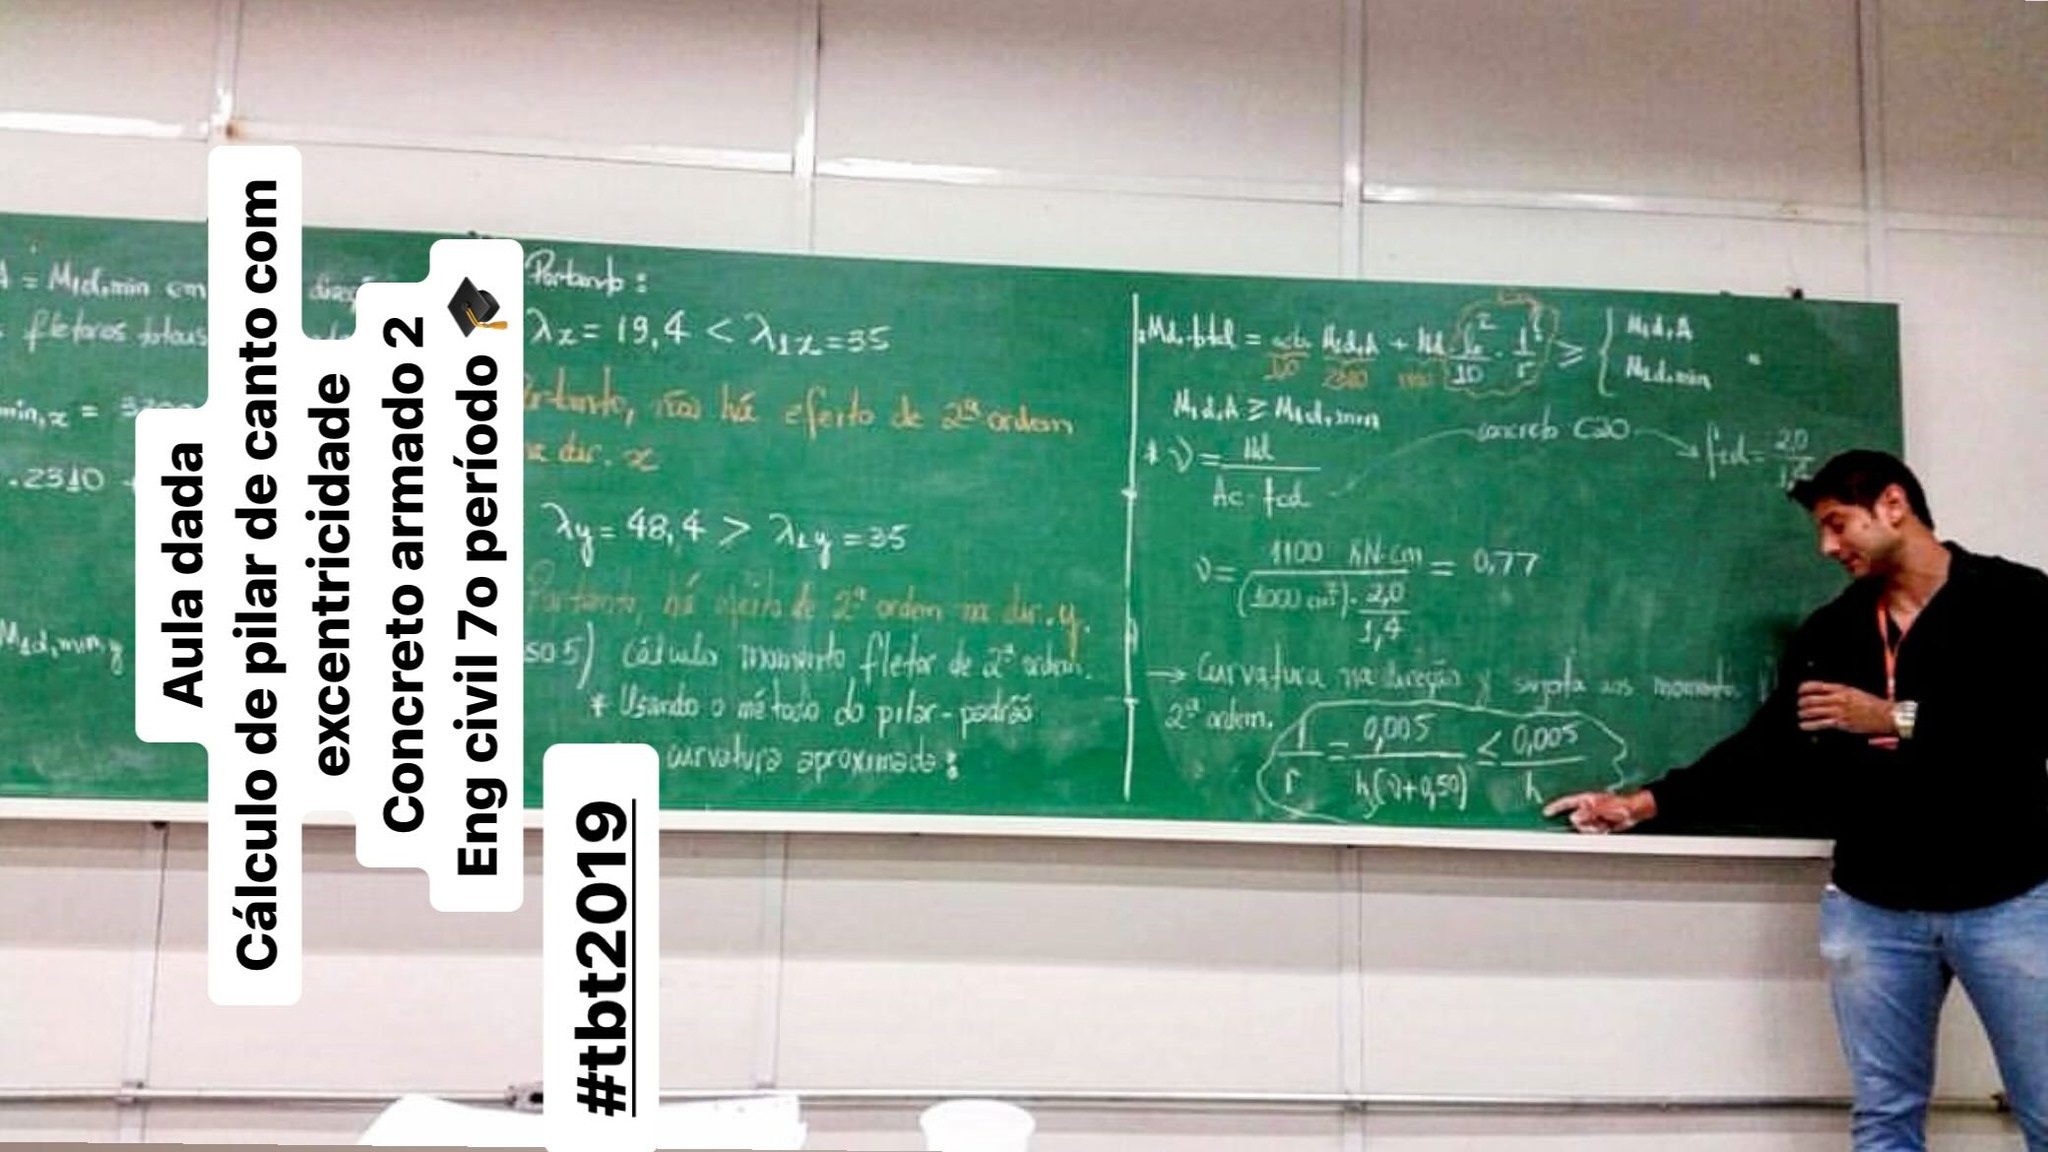 Aula dada
Cálculo de pilar de canto com
excentricidade
Concreto armado 2
Eng civil 7o período 🎓
#tbt2019
= M1d,min em
fletores totais
min,x =
.2310
M1d,min,y
Portanto:
λx = 19,4 < λ1x = 35
não há efeito de 2ª ordem
dir. x
λy = 48,4 > λ1y = 35
Portanto, há efeito de 2ª ordem na dir. y.
so 5) Cálculo momento fletor de 2ª ordem.
* Usando o método do pilar-padrão
curvatura aproximada:
Md,total = M1d,A + Nd le²/10 · 1/r ≥ { M1d,A
M1d,min
M1d,A ≥ M1d,min
concreto C20 → fcd = 2,0/1,4
* ν = Nd / Ac · fcd
ν = 1100 KN·cm / (1000 cm²) · 2,0/1,4 = 0,77
→ Curvatura na direção y sujeita aos momentos
2ª ordem.
1/r = 0,005 / h(ν+0,50) ≤ 0,005 / h